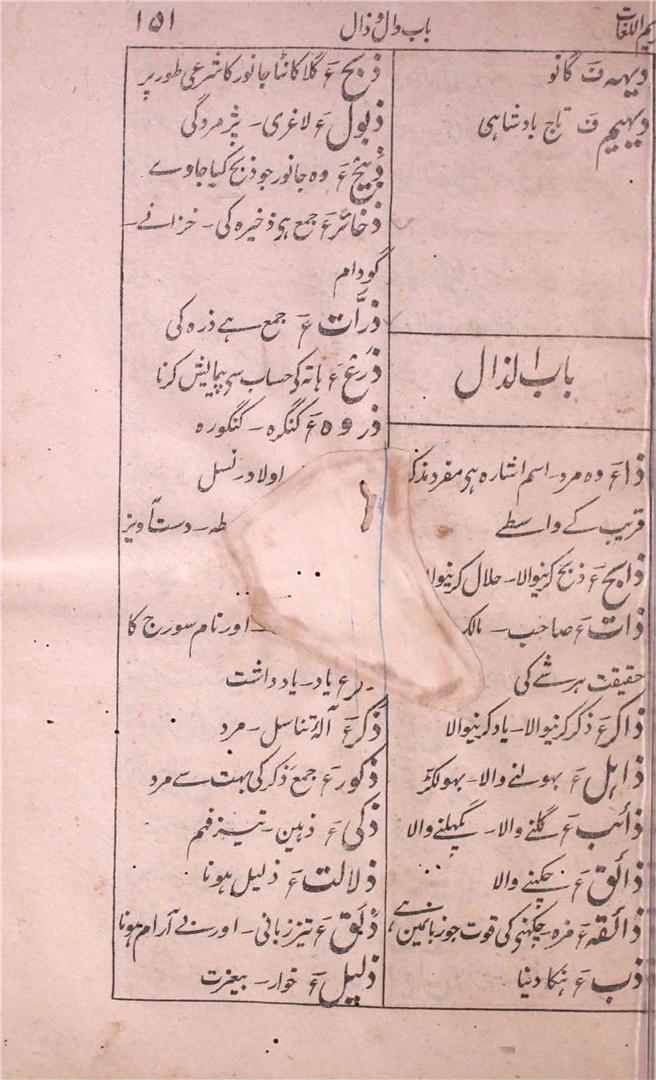 یم اللغات
باب دال و ذال
۱۵۱
دیہہ ف گانو
دیہیم ف تاج بادشاہی
باب الذال
ذاع وہ مرد۔ اسم اشارہ ہی مفرد مذکر
قریب کے واسطے
ذابح ع ذبح کرنیوالا۔ حلال کرنیوا
ذات ع صاحب ۔ مالک
حقیقت ہر شے کی
ذاکر ع ذکر کرنیوالا۔ یاد کرنیوالا
ذاہل ع بھولنے والا۔ بھولکڑ
ذائب ع گلنے والا ۔ پگہلنے والا
ذائق ع چکہنے والا
ذائقہ ع مزہ۔ چکہنی کی قوت جو زبانمین ہے
ذب ع ہنکا دینا
ذبح ع گلا کاٹنا جانور کا شرعی طور پر
ذبول ع لاغری ۔ پژمردگی
ذبیح ع وہ جانور جو ذبح کیا جاوے
ذخائر ع جمع ہی ذخیرہ کی ۔ خزانے۔
گودام
ذرّات ع جمع ہے ذرہ کی
ذرع ع ہاتہ کی حساب سی پیمایش کرنا
ذروہ ع کنگرہ ۔ کنگورہ
اولاد۔ نسل
طہ۔ دستاویز
۔ اور نام سورج کا
ر ع یاد۔ یادداشت
ذکر ع آلۂ تناسل۔ مرد
ذکور ع جمع ذکر کی بہت سے مرد
ذکی ع ذہین ۔ تیز فہم
ذلالت ع ذلیل ہونا
ذلق ع تیز زبانی۔ اور بے آرام ہونا
ذلیل ع خوار۔ بیعزت